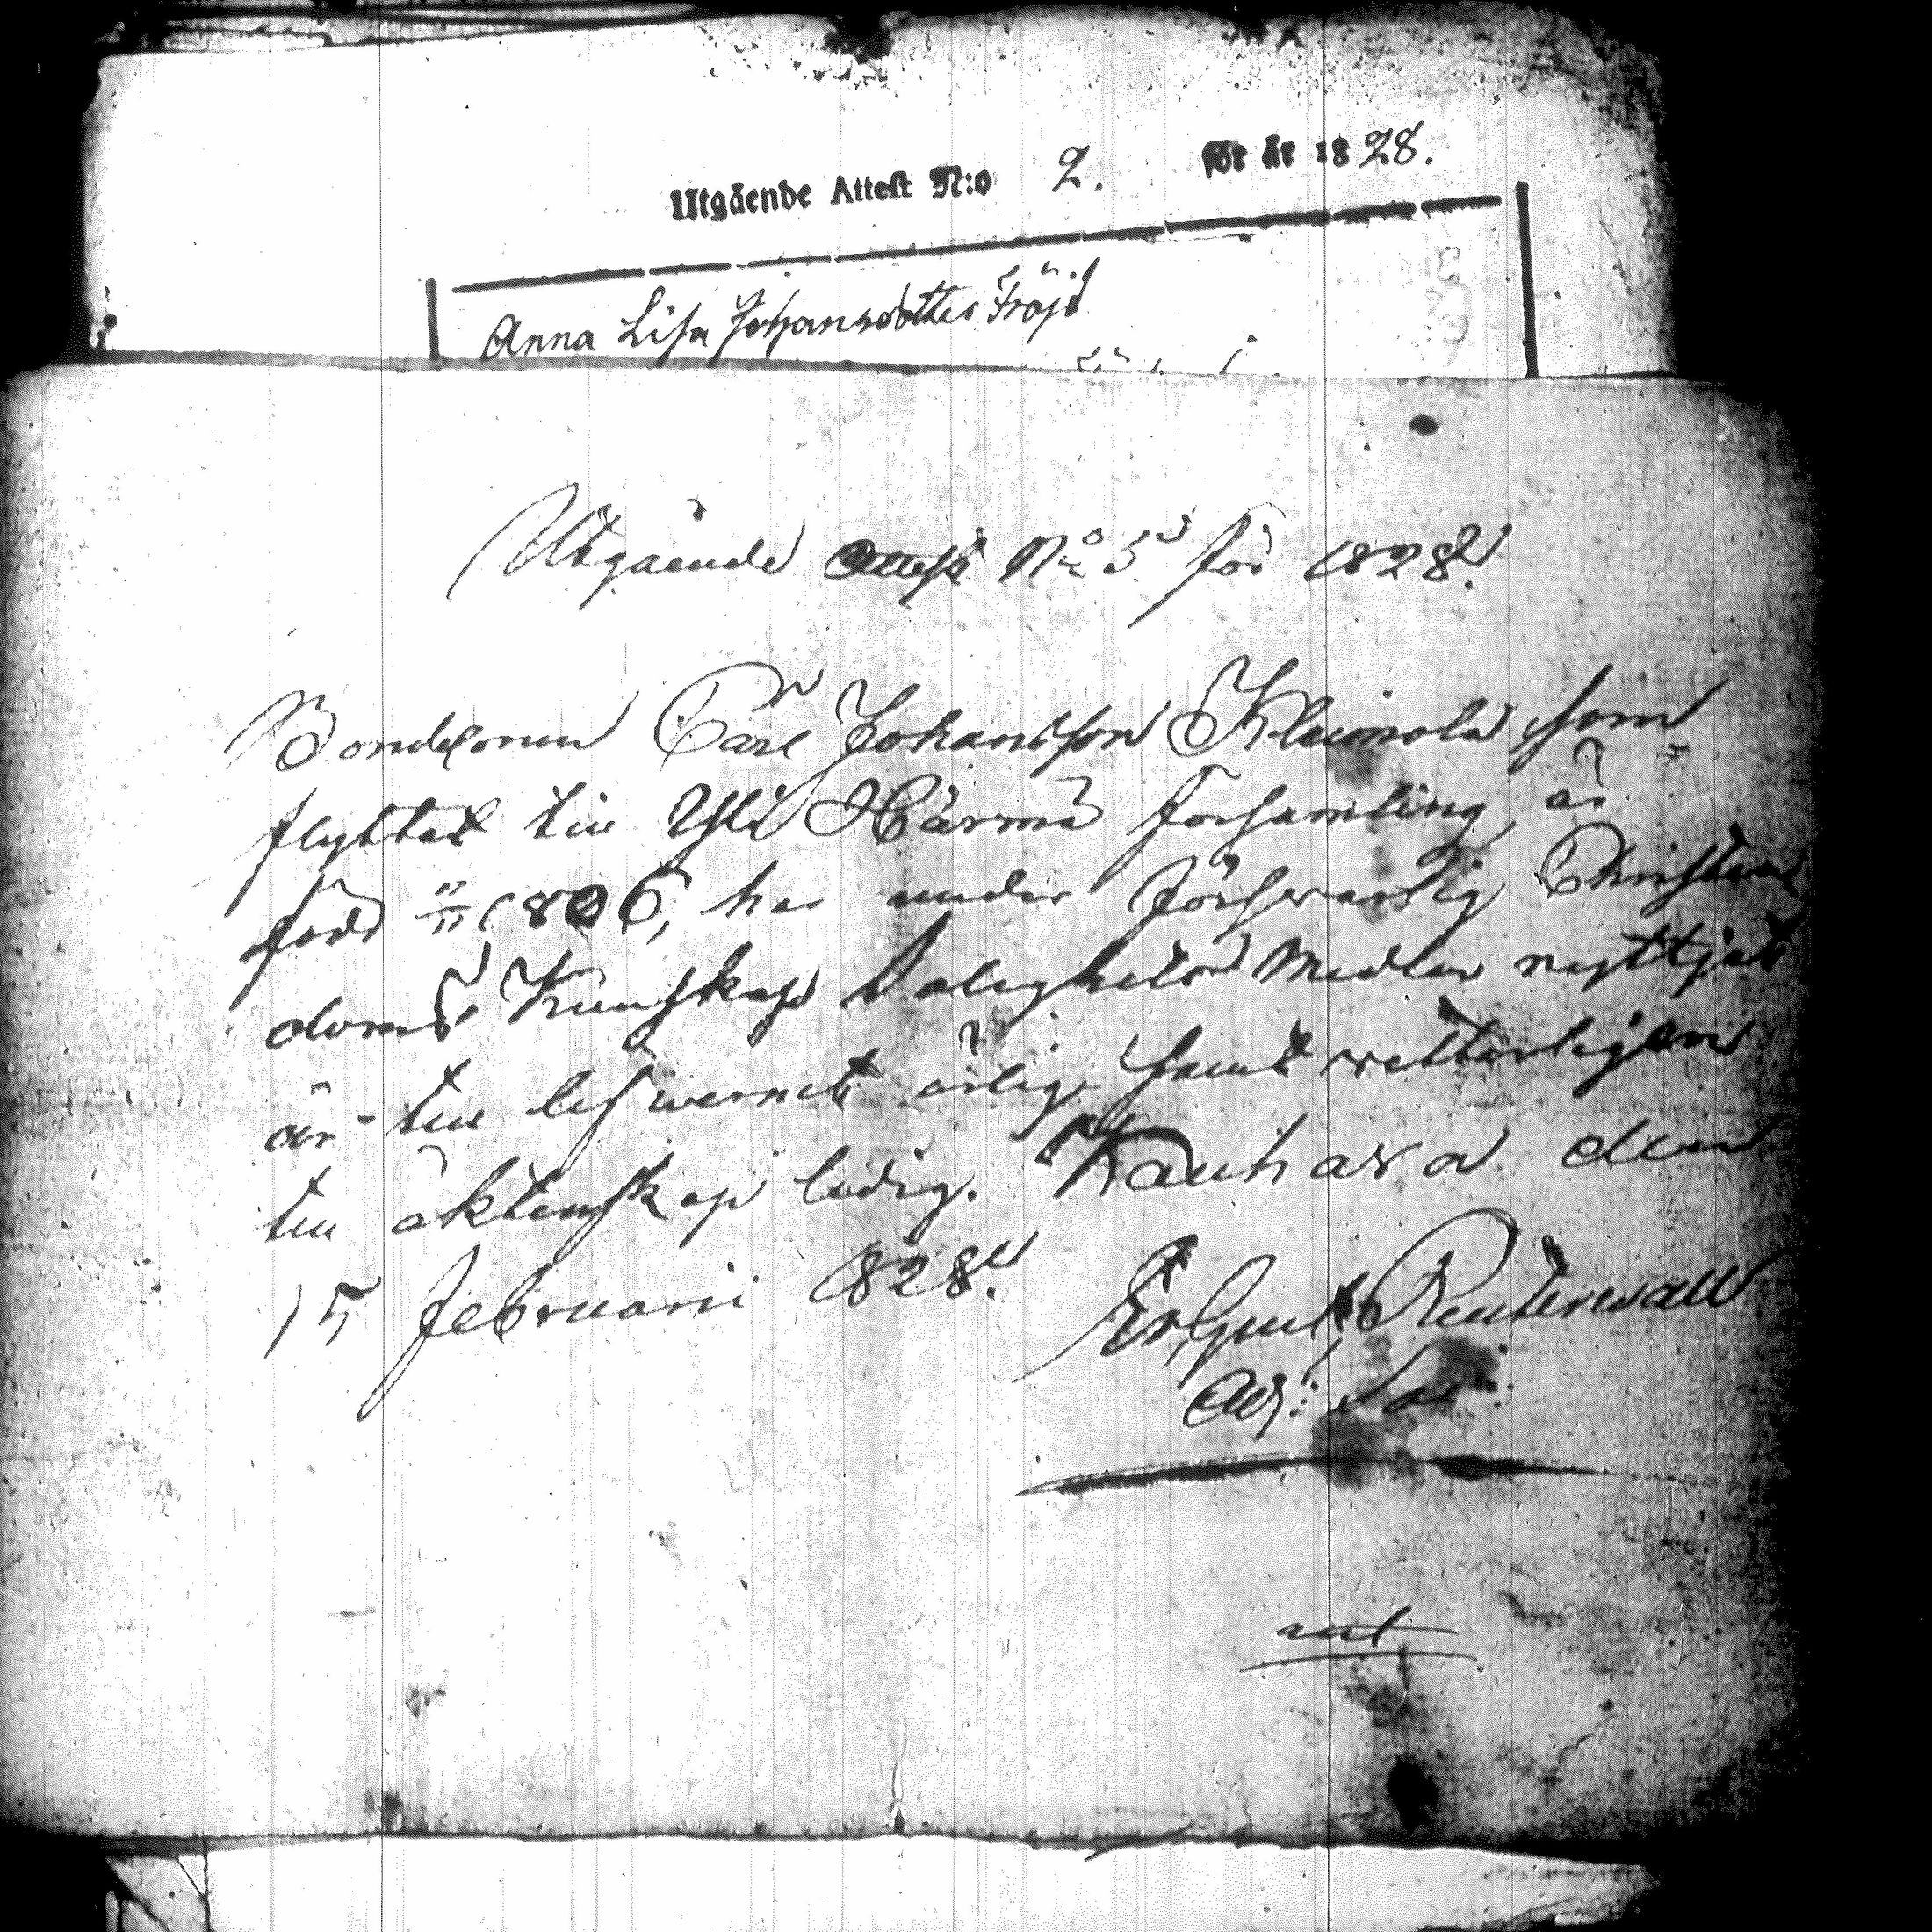 Utgående Attest N:o 2. för år 1828.
Anna Lisa Johansdotter Fröjd
Utgående Attest No 5 för 1828.
Bondesonen Carl Johansson Kleimola som
flyttat till Ylihärmä församling är
född 11/11 1806, har under försvarlig Christen
doms Kunskap Salighets Medlen nyttjat
är till lefwernet ärlig samt wetterligen
till äktenskap ledig. Kauhava den
15 Februarii 1828.
Er. Gust. Reuterwall
Adj: